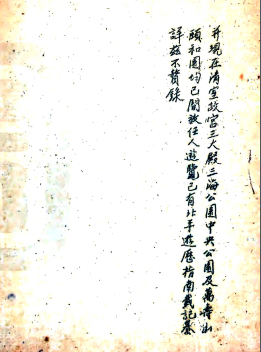 并現在清室故宮三大殿三海公園中央公園及萬壽山
頤和園均已開放任人遊覽已有北平遊歷指南載記綦
詳茲不贅錄